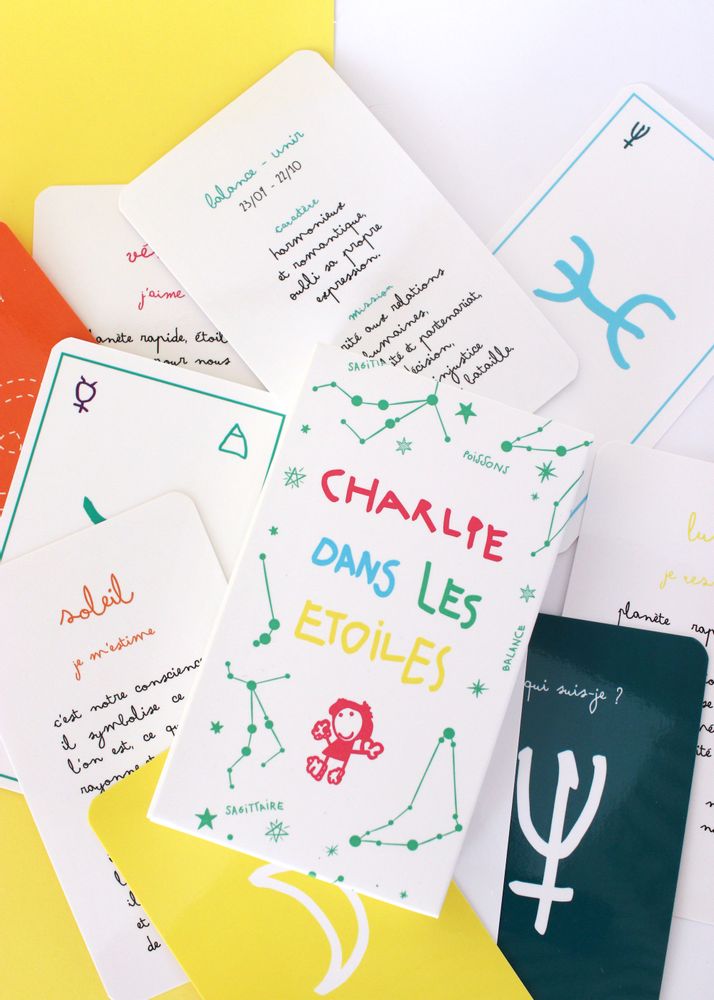 balance - unir
23/09 - 22/10
caractère
harmonieux
et romantique,
oubli sa propre
expression.
mission
aux relations
humaines,
et partenariat,
injustice
bataille
vé
j'aime
planète rapide,
pour nous
SAGITTA
POISSONS
CHARLIE
DANS LES
ETOILES
BALANCE
SAGITTAIRE
soleil
je m'estime
c'est notre conscience
il symbolise ce
l'on est, ce
il
l
et
de
je
planète
qui suis-je ?